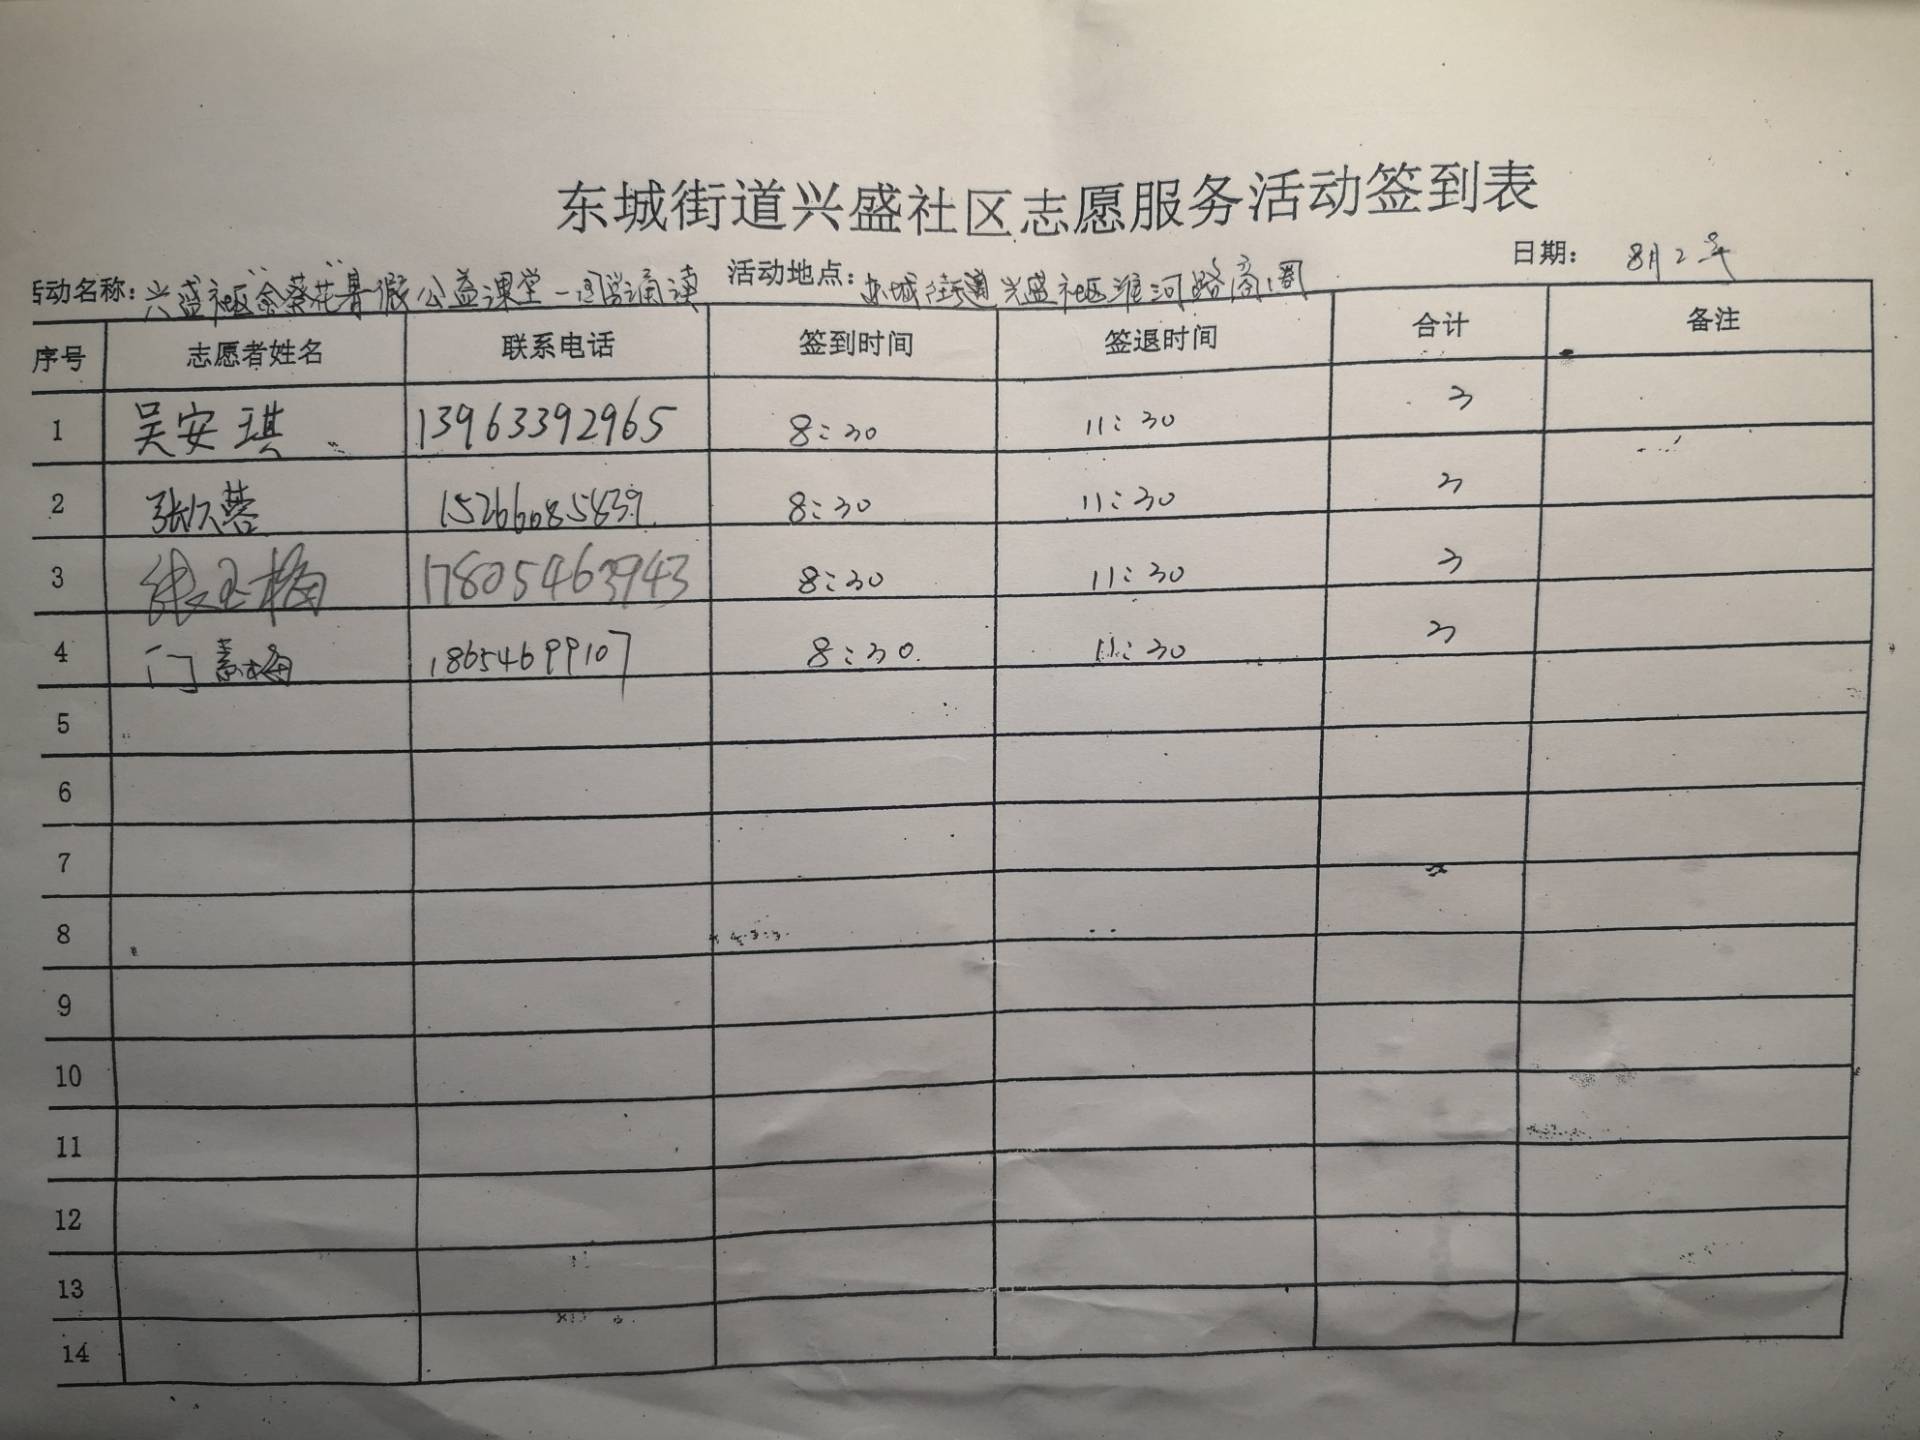 东城街道兴盛社区志愿服务活动签到表
活动名称：兴盛社区"金葵花"暑假公益课堂—国学诵读 活动地点：东城街道兴盛社区淮河路商圈 日期：8月2号
序号 志愿者姓名 联系电话 签到时间 签退时间 合计 备注
1 吴安琪 13963392965 8:30 11:30 3
2 张久蓉 15266085839 8:30 11:30 3
3 张玉梅 17805463943 8:30 11:30 3
4 门素梅 18654699107 8:30 11:30 3
5
6
7
8
9
10
11
12
13
14